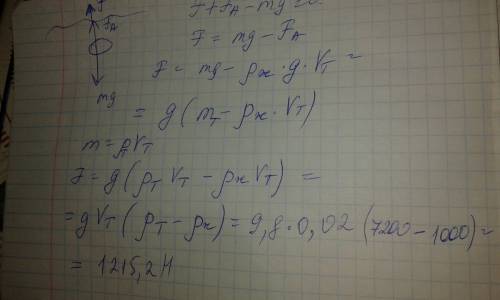 F
F_A
mg
F + F_A - mg = 0
F = mg - F_A
F = mg - ρж · g · Vт =
= g (mт - ρж · Vт)
m = ρт Vт
F = g (ρт Vт - ρж Vт) =
= g Vт (ρт - ρж) = 9,8 · 0,02 (7200 - 1000) =
= 1215,2 Н